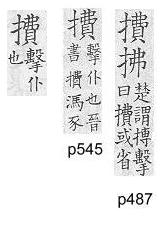 㩌
擊仆
也
㩌
擊仆也晉
書㩌馮豕
p545
㩌拂
楚謂搏擊
曰㩌或省
p487